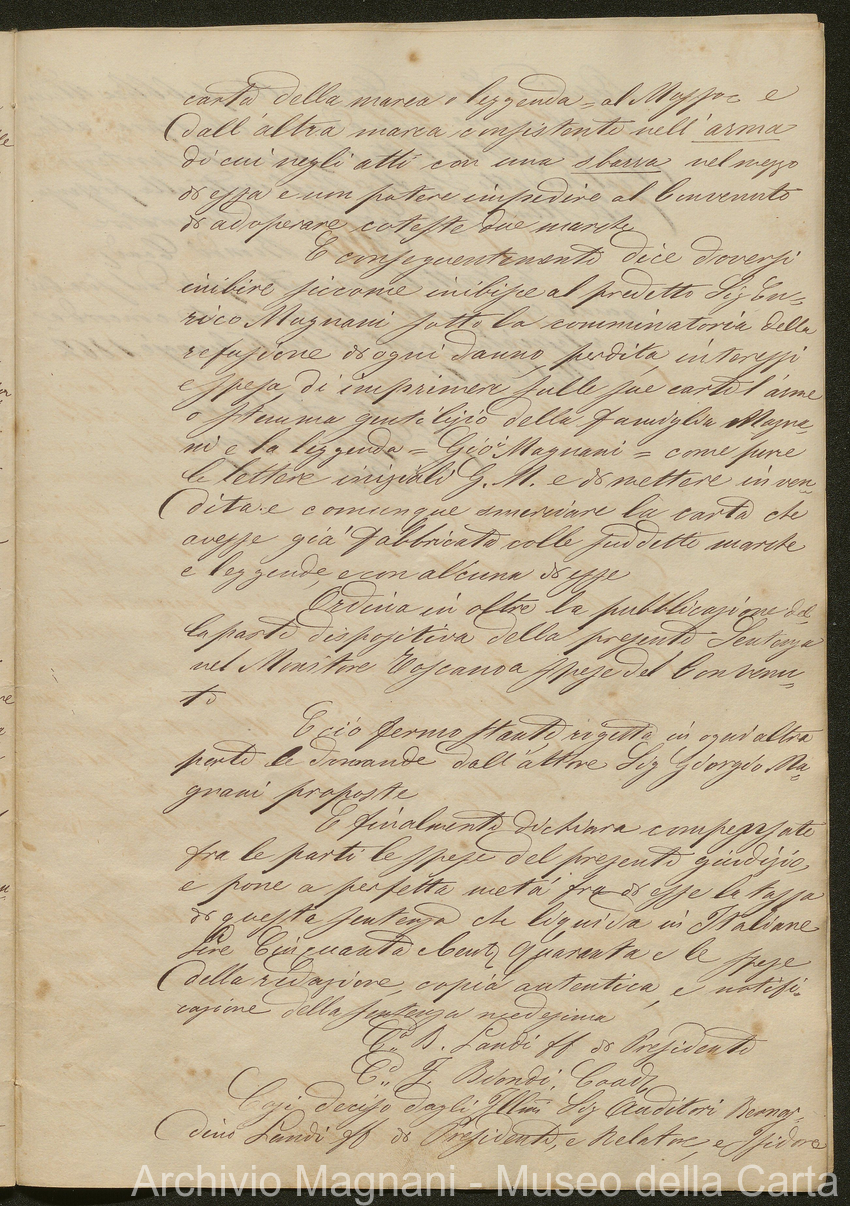 carta della marca o leggenda = al Masso = e
dall'altra marca consistente nell'arma
di cui negli atti con una sbarra nel mezzo
di essa e non potere impedire al Convenuto
di adoperare coteste due marche
E conseguentemente dice doversi
inibire siccome inibisce al predetto Sig En=
rico Magnani sotto la comminatoria della
refusione di ogni danno, perdita, interessi
e spesa, di imprimere sulle sue carte l'arme
o stemma gentilizio della famiglia Magna=
ni e la leggenda = Gio: Magnani = come pure
le lettere iniziali G. M. e di mettere in ven=
dita e comunque smerciare la carta che
avesse già fabbricata colle suddette marche
e leggende, e con alcuna di esse
Ordina in oltre la pubblicazione del=
la parte dispositiva della presente Sentenza
nel Monitore Toscano a spese del Convenu=
to
E ciò fermo stante rigetta in ogni altra
parte le domande dall'attore Sig Giorgio Ma=
gnani proposte
E finalmente dichiara compensate
fra le parti le spese del presente giudizio,
e pone a perfetta metà fra di esse la tassa
di questa sentenza che liquida in Italiane
Lire Cinquanta Cent Quaranta e le spese
della redazione, copia autentica, e notifi=
cazione della sentenza medesima
C.o B. Landi ff di Presidente
C.o F. Biondi. Coad
Così deciso dagli Illmi Sig Auditori Bernar=
dino Landi ff di Presidente, e Relatore, e Isidoro
Archivio Magnani - Museo della Carta